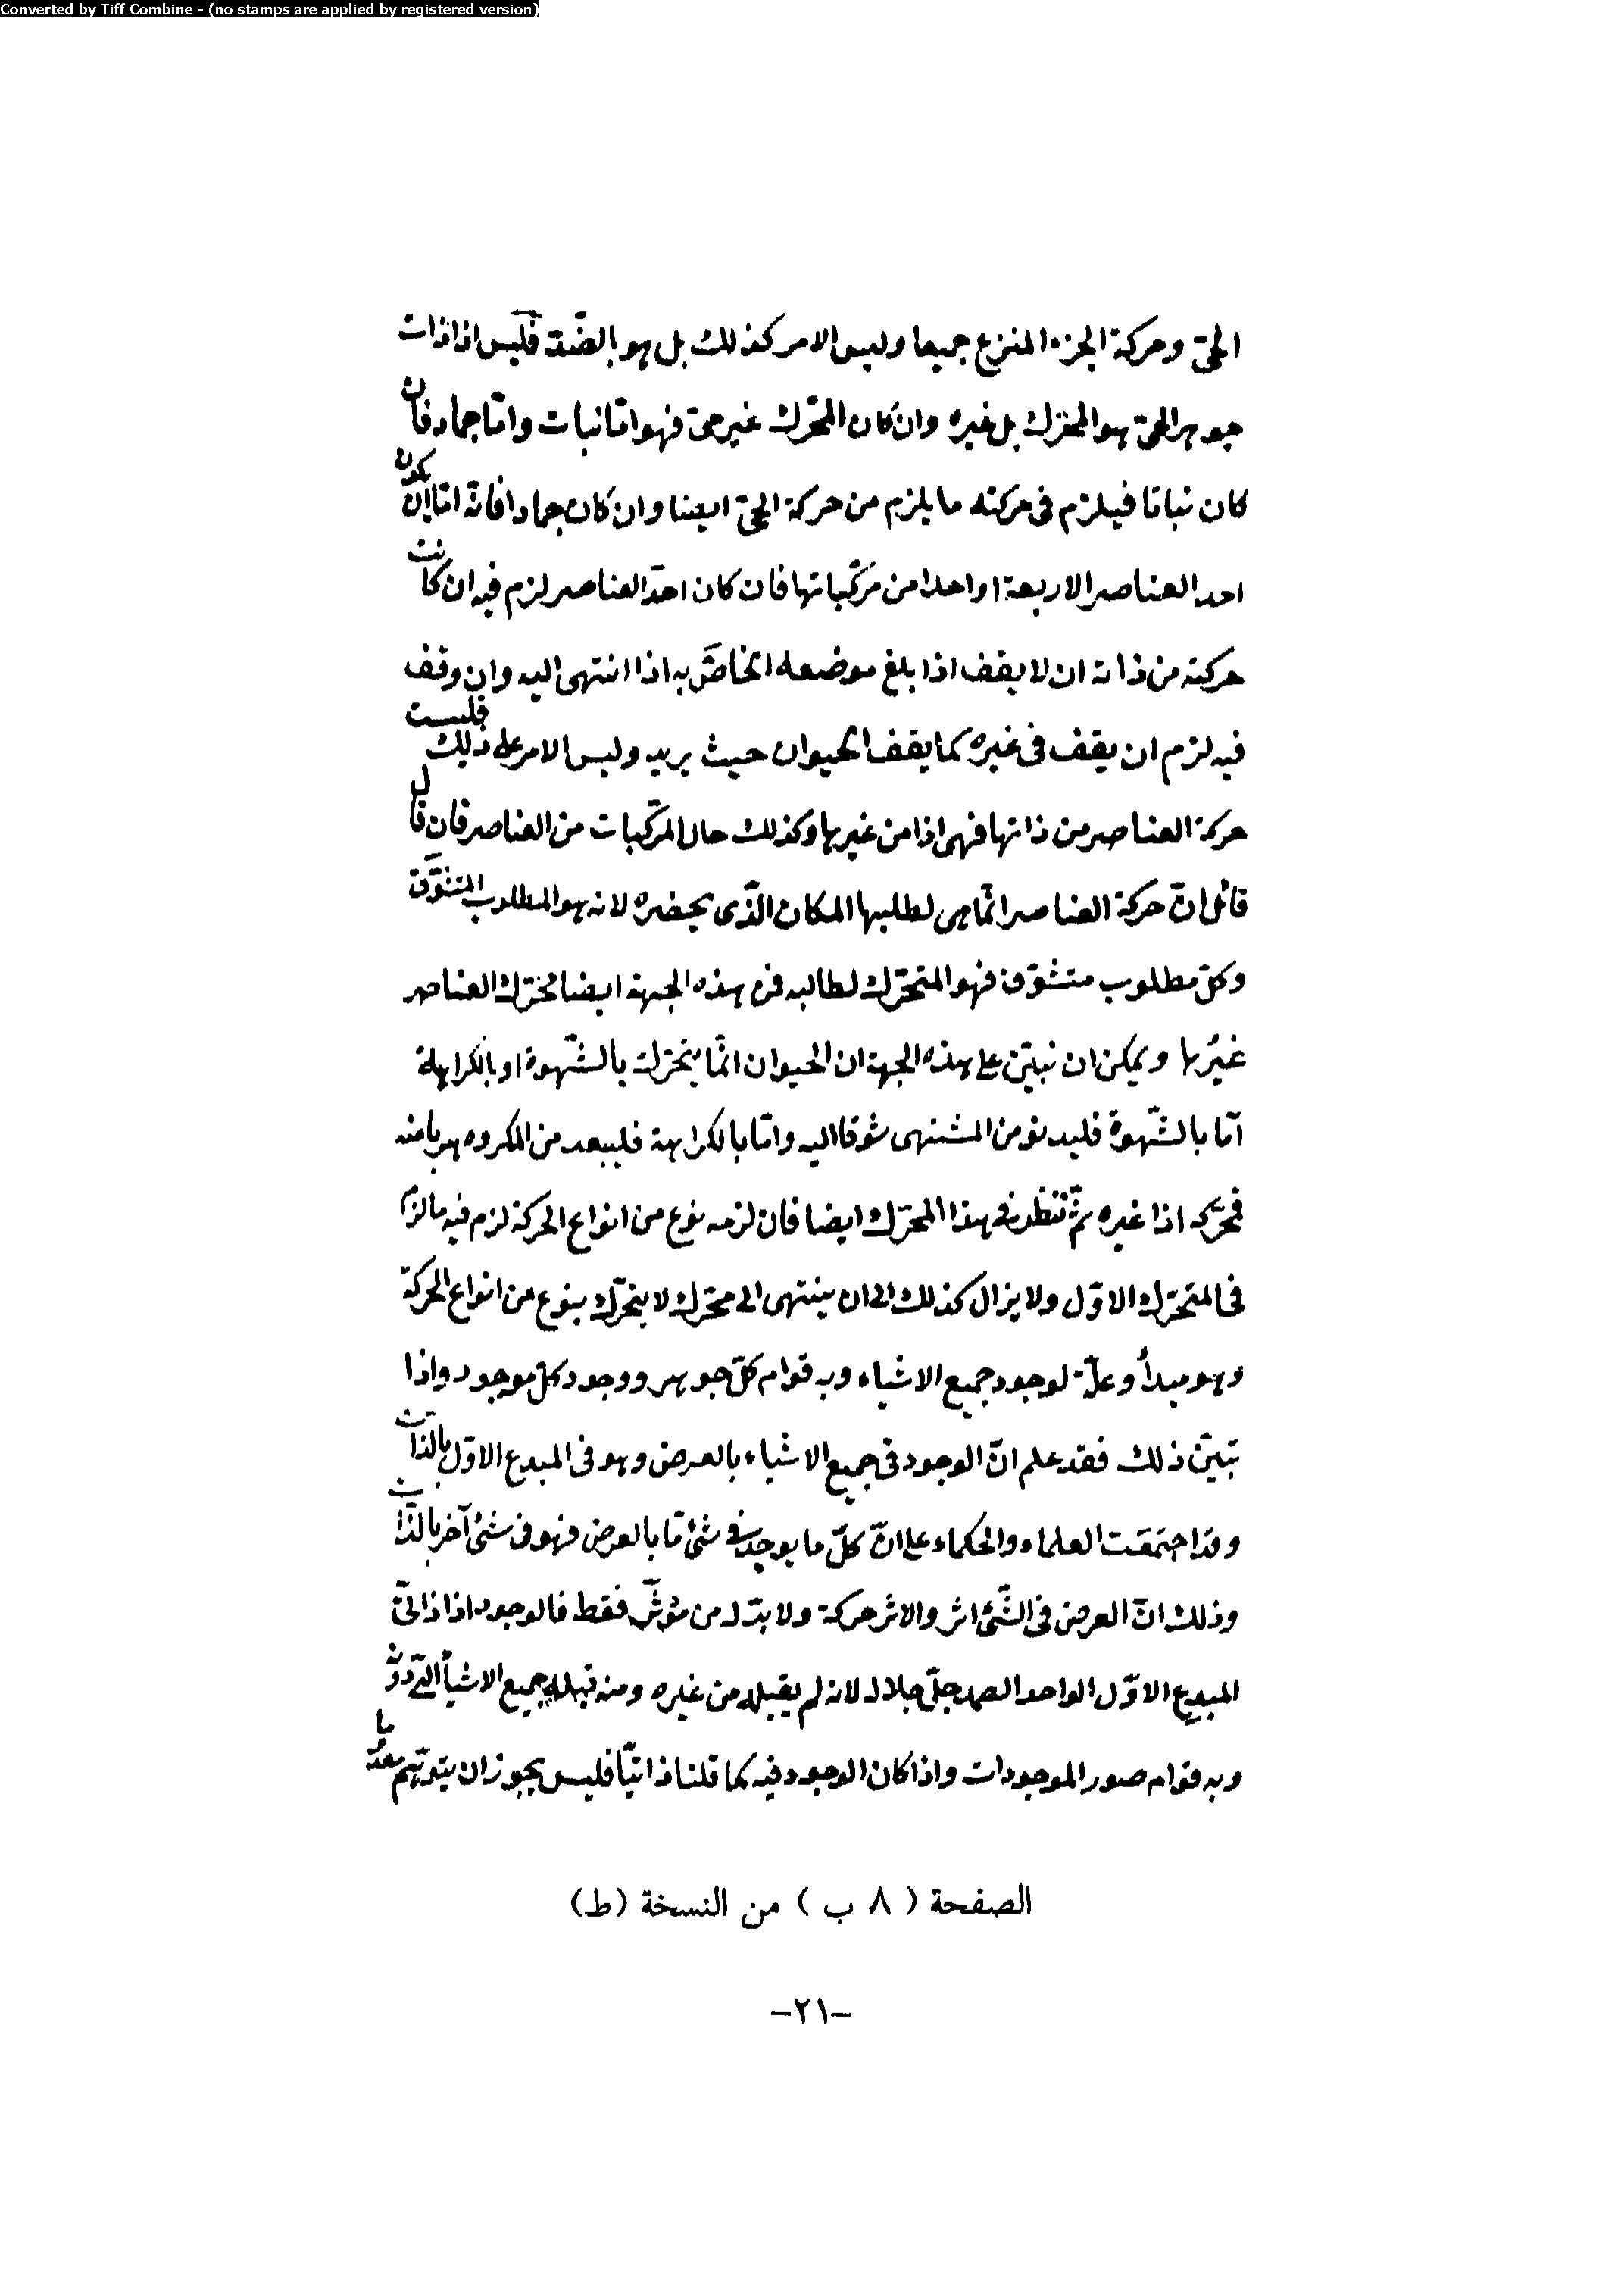 Converted by Tiff Combine - (no stamps are applied by registered version)
الحىّ وحركة الجزء المنتزع جميعا وليس الامر كذلك بل هو بالضّد فليس اذا ذات
جوهر الحىّ هو المحرّك بل غيره وان كان المحّرك غير حىّ فهو امّا نبات وامّا جماد فان
كان نباتا فيلزم فى حركته ما يلزم من حركة الحىّ ايضا وان كان جمادا فانه امّا ان يكون
احد العناصر الاربعة او احدا من مركّباتها فان كان احد العناصر لزم فيه ان كانت
حركته من ذاته ان لا يقف اذا بلغ موضعه الخاصّ به اذا انتهى اليه وان وقف
فيه لزم ان يقف فى غيره كما يقف الحيوان حيث يريد وليس الامر على ذلك فليست
حركة العناصر من ذاتها فهى اذا من غيرها وكذلك حال المركّبات من العناصر فان قال
قائل انّ حركة العناصر انّما هى لطلبها المكان الّذى يحضره لانه هو المطلوب المتشوّق
وكلّ مطلوب متشوّق فهو المتحرّك لطالبه فمن هذه الجهة ايضا محرّك العناصر
غيرُها ويمكن ان نبيّن على هذه الجهة ان الحيوان انّما يتحرّك بالشّهوة او بالكراهة
امّا بالشّهوة فليدنو من المشتهى شوقا اليه وامّا بالكراهة فليبعد من المكروه هربا منه
فمحرّكه اذا غيره ثمّ ننظر فى هذا المحرّك ايضا فان لزمه نوع من انواع الحركة لزم فيه ما لزم
فى المتحرّك الاوّل ولا يزال كذلك الى ان ينتهى الى محرّك لا يتحرّك بنوع من انواع الحركة
وهو مبدأ وعلّة لوجود جميع الاشياء وبه قوام كلّ جوهر ووجود كلّ موجود واذا
تبيّن ذلك فقد علم انّ الوجود فى جميع الاشياء بالعرض وهو فى المبدع الاوّل بالذات
وقد اجتمعت العلماء والحكماء على انّ كلّ ما يوجد فى شئ مّا بالعرض فهو فى شئ آخر بالذّات
وذلك انّ العرض فى الشّئ اثر والاثر حركة ولا بدّ له من مؤثّر فقط فالوجود اذا ذاتىّ
المبدع الاوّل الواحد الصمد جلّ جلاله لانه لم يقبله من غيره ومنه قبله جميع الاشياء الّتى دونه
وبه قوام صور الموجودات واذا كان الوجود فيه كما قلنا ذاتيّا فليس يجوز ان يتوهّم معدوما
الصفحة ( ٨ ب ) من النسخة (ط)
-٢١-